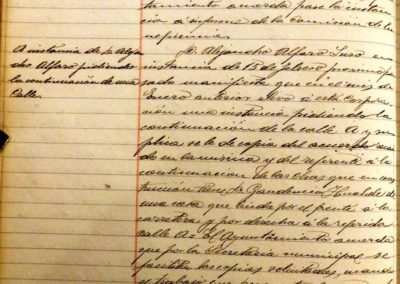 tamiento acuerda pase la instan
cia a informe de la Comisión de In
genieria.
A instancia de D. Alejan
dro Alfaro pidiendo
la continuación de una
Calle.
D. Alejandro Alfaro Suso en
instancia de 15 de febrero proximo pa
sado manifiesta que en el mes de
Enero anterior elevó a esta corpora
ción una instancia pidiendo la
continuación de la calle A y su
plica se le de copia del acuerdo recai
do en la misma y del referente á la
continuación de las obras que en cons
trucción tiene D. Gaudencio Hualde de
una casa que linda por el frente á la
carretera y por derecha á la referida
calle A = El Ayuntamiento acuerda
que por la Secretaría municipal se
faciliten las copias solicitadas, cuando